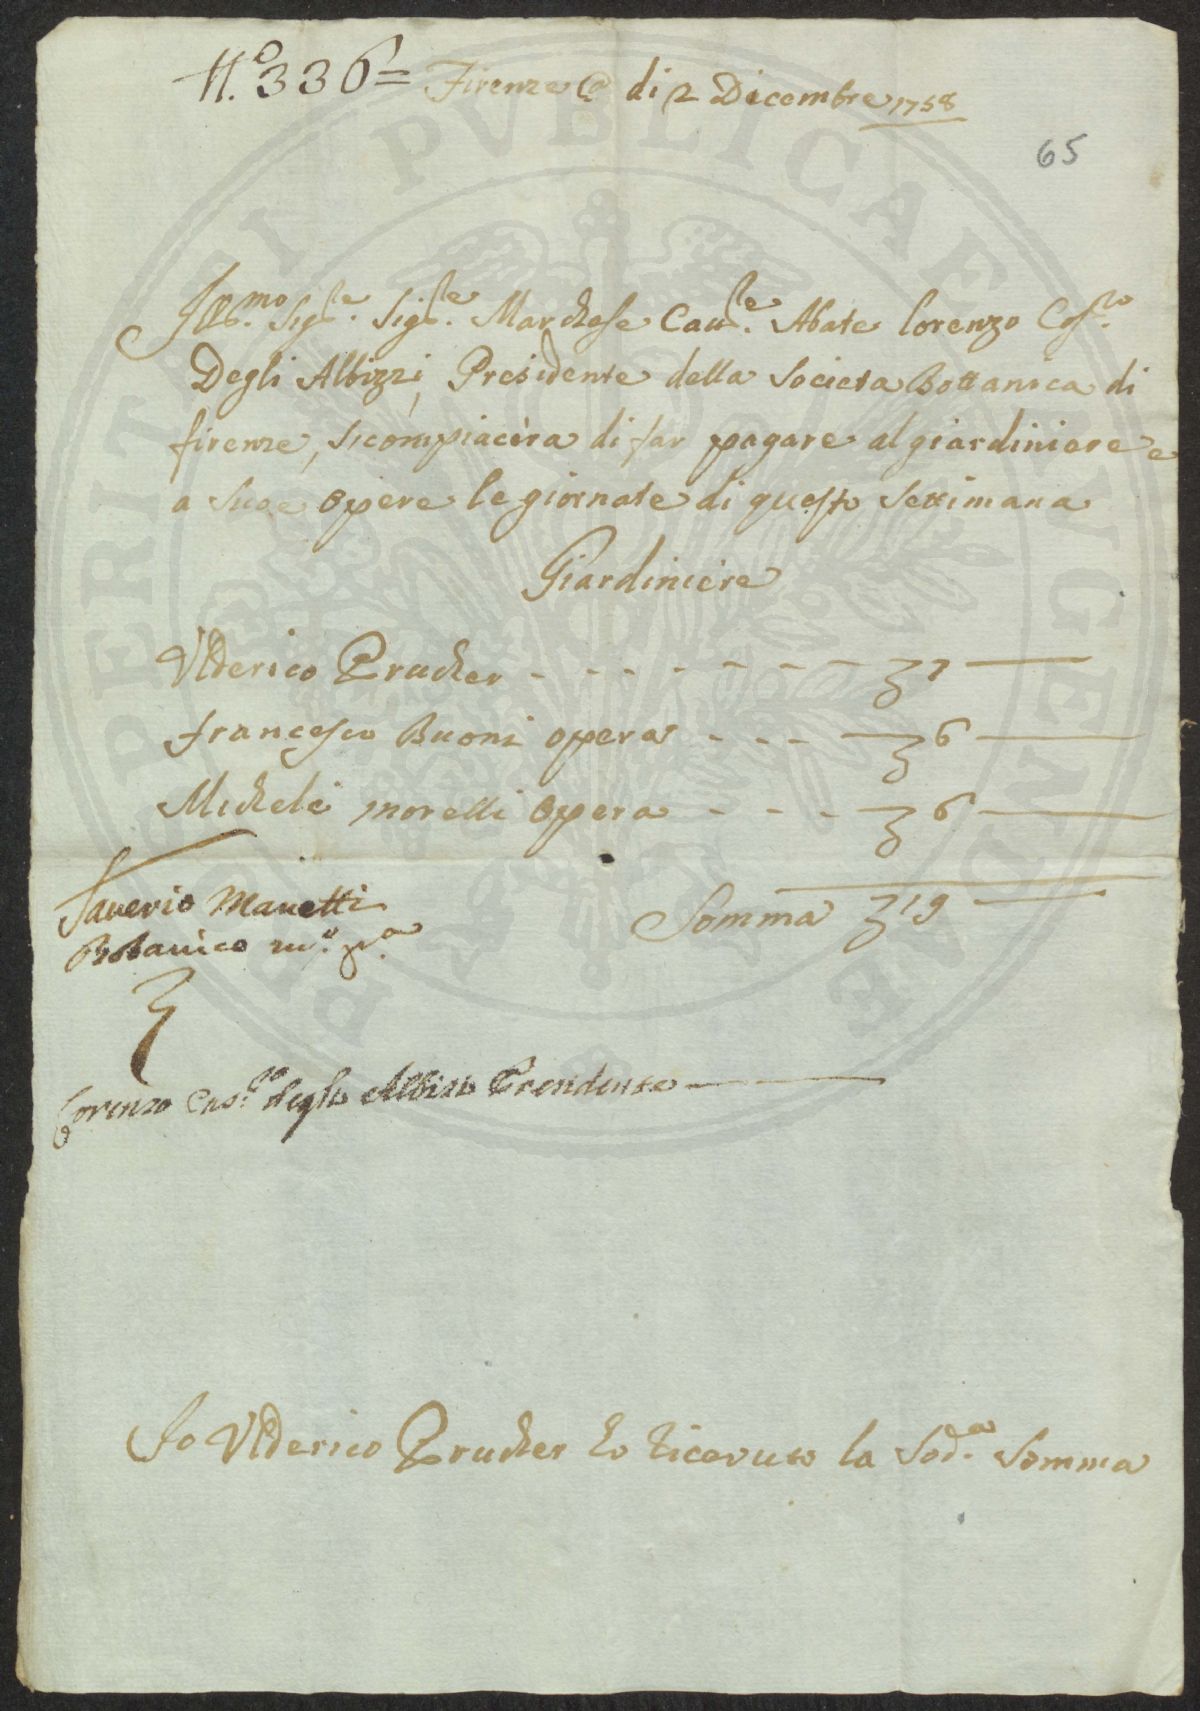 N.o 336= Firenze @ di 2 Dicembre 1758
65
Ill.mo Sig.re Sig.re Marchese Cau.re Abate lorenzo Cos.to
Degli Albizzi, Presidente della Societa Bottanica di
firenze, si compiacera di far pagare al giardiniere e
a Sue opere le giornate di questa Settimana
Giardiniere
Ulderico Prucher - - - - - - - - 7
francesco Buoni opera - - - - 6
Michele morelli opera - - - - 6
Somma 19
Saverio Manetti
Botanico m.o p.a
Lorenzo Cos.to degli Albizi Presidente
Io Ulderico Prucher ho Ricevuto la Sod.a Somma
PERITURI PVBLICAE